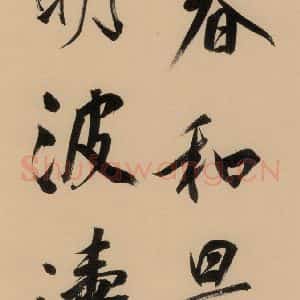 春和景
明波
Shufawang.CN